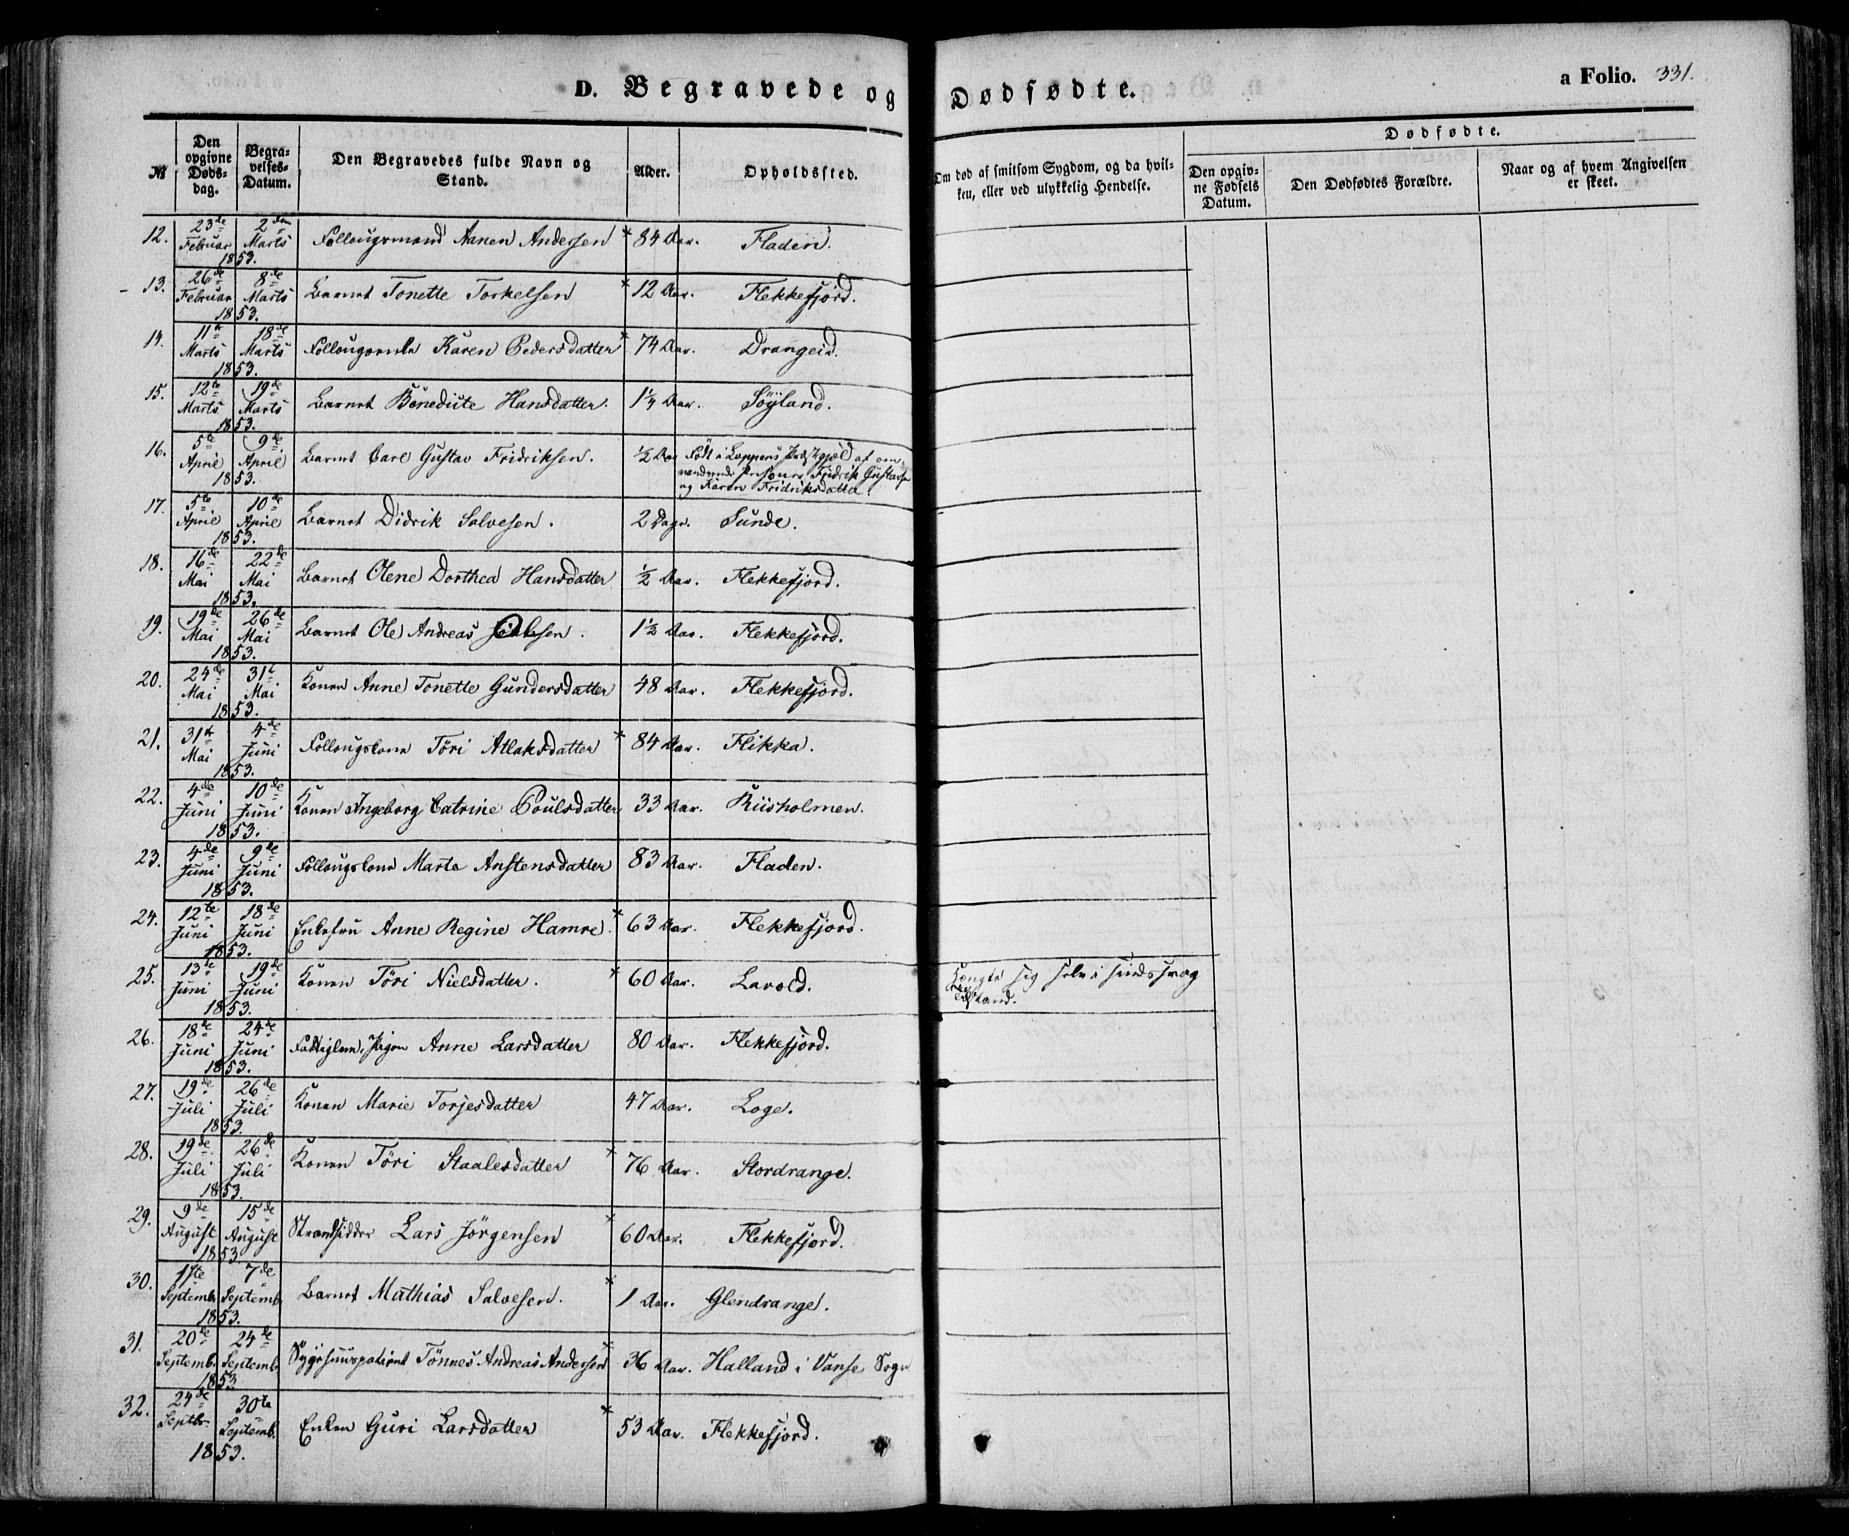 D. Begravede og Dødfødte. a Folio. 331.
№ Den opgivne Døds-dag. Begra-velses-Datum. Den Begravedes fulde Navn og Stand. Alder. Opholdssted. Om død af smitsom Sygdom, og da hvil-ken, eller ved ulykkelig Hendelse. Dødfødte. Den opgiv-ne Fødsels Datum. Den Dødfødtes Forældre. Naar og af hvem Angivelsen er skeet.
12. 23de Februar 2den Marts 1853. Follougsmand Aanen Andersen × 84 Aar. Fladen.
13. 26de Februar 8de Marts 1853. Barnet Tonette Torkelsen × 12 Aar. Flekkefjord.
14. 11te Marts 18de Marts 1853. Follougsenke Karen Pedersdatter × 74 Aar. Drangeid.
15. 12te Marts 19de Marts 1853. Barnet Benedicte Hansdatter. 1¼ Aar. Söyland.
16. 5te April 9de April 1853. Barnet Carl Gustav Fridriksen. ½ Aar Født i Loppens Præstegjæld af om-
vandrende Personer Fridrik Gustavsen
og Karen Fridriksdatter.
17. 5te April 10de April 1853. Barnet Didrik Salvesen. 2 Dage. Sunde.
18. 16de Mai 22de Mai 1853. Barnet Olene Dorthea Hansdatter ½ Aar. Flekkefjord.
19. 19de Mai 26de Mai 1853. Barnet Ole Andreas 1½ Aar. Flekkefjord.
20. 24de Mai 31te Mai 1853. Konen Anne Tonette Gundersdatter 48 Aar. Flekkefjord.
21. 31te Mai 4de Juni 1853. Follougskone Töri Atlaksdatter × 84 Aar. Flikka.
22. 4de Juni 10de Juni 1853. Konen Ingeborg Catrine Poulsdatter 33 Aar. Riisholmen.
23. 4de Juni 9de Juni 1853. Follougskone Marte Anstensdatter 83 Aar. Fladen.
24. 12te Juni 18de Juni 1853. Enkefru Anne Regine Hamre. × 63 Aar. Flekkefjord.
25. 13te Juni 19de Juni 1853. Konen Töri Nielsdatter. × 60 Aar. Lavold. Hængte sig selv i sindssvag
Tilstand.
26. 18de Juni 24de Juni 1853. Fattiglem, Pigen Anne Larsdatter 80 Aar. Flekkefjord.
27. 19de Juli 26de Juli 1853. Konen Marie Torjesdatter 47 Aar. Loge.
28. 19de Juli 26de Juli 1853. Konen Töri Staalesdatter × 76 Aar. Stordrange.
29. 9de August 15de August 1853. Strandsidder Lars Jörgensen × 60 Aar. Flekkefjord.
30. 1ste Septemb. 7de Septemb. 1853. Barnet Mathias Salvesen. × 1 Aar. Glendrange.
31. 20de Septemb. 24de Septemb. 1853 Sygehuuspatient Tönnes Andreas Andersen × 36 Aar. Halland i Vanse Sogn
32. 24de Septbr. 30te Septemb. 1853. Enken Guri Larsdatter × 53 Aar. Flekkefjord.